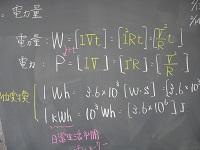 電力量
電力量: W = [IVt] = [I²Rt] = [V²/R t]
電力: P = [IV] = [I²R] = [V²/R]
1 Wh = 3.6×10³ [W·s] = [3.6×10³ J]
1 kWh = 10³ Wh = [3.6×10⁶ J]
日常生活中